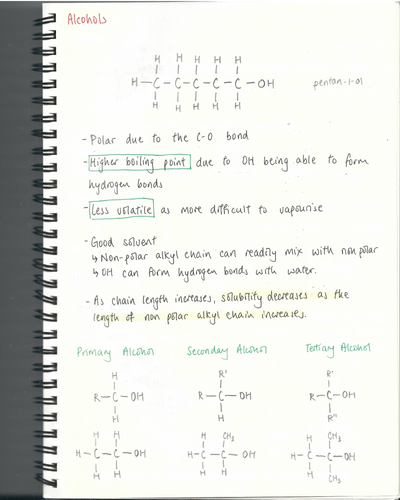 Alcohols
H H H H H
H-C-C-C-C-C-OH pentan-1-ol
H H H H H
- Polar due to the C-O bond
- Higher boiling point due to OH being able to form
hydrogen bonds
- Less volatile as more difficult to vapourise
- Good solvent
↳ Non-polar alkyl chain can readily mix with non polar
↳ OH can form hydrogen bonds with water.
- As chain length increases, solubility decreases as the
length of non polar alkyl chain increases.
Primary Alcohol Seconday Alcohol Tertiary Alcohol
H R' R'
R-C-OH R-C-OH R-C-OH
H H R"
H H H CH3 H CH3
H-C-C-OH H-C-C-OH H-C-C-OH
H H H H H CH3